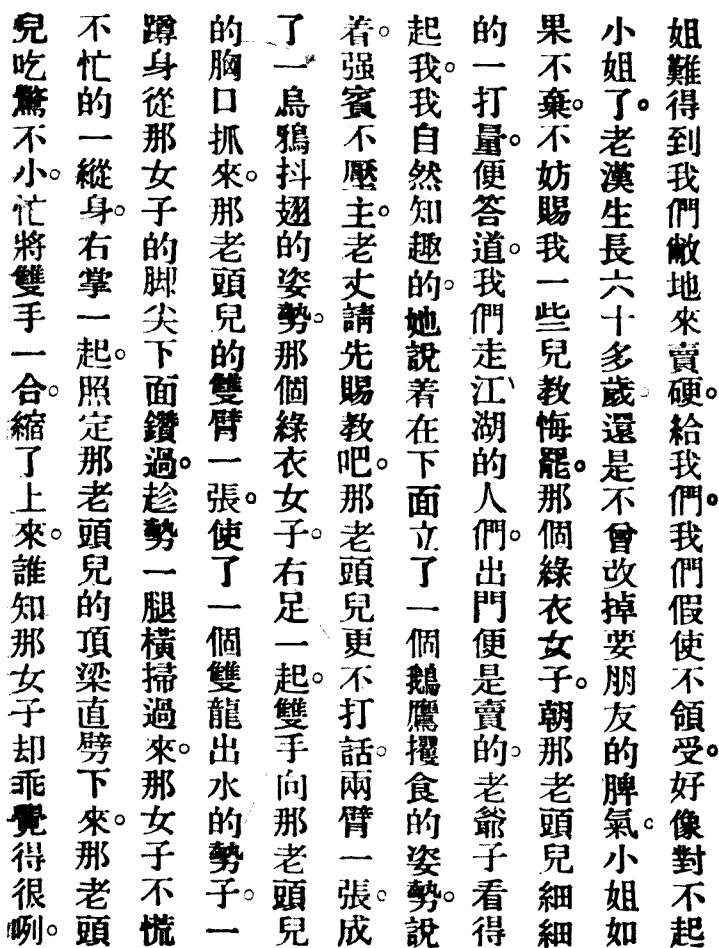 姐難得到我們敝地來賣硬。給我們。我們假使不領受。好像對不起
小姐了。老漢生長六十多歲。還是不曾改掉要朋友的脾氣。小姐如
果不棄。不妨賜我一些兒教悔罷。那個綠衣女子。朝那老頭兒細細
的一打量。便答道。我們走江湖的人們。出門便是賣的。老爺子看得
起我。我自然知趣的。她說着在下面立了一個鵝鷹攫食的姿勢。說
着。强賓不壓主。老丈請先賜教吧。那老頭兒更不打話。兩臂一張。成
了一鳥鴉抖翅的姿勢。那個綠衣女子。右足一起。雙手向那老頭兒
的胸口抓來。那老頭兒的雙臂一張。使了一個雙龍出水的勢子。一
蹲身從那女子的脚尖下面鑽過。趁勢一腿橫掃過來。那女子不慌
不忙的一縱身。右掌一起。照定那老頭兒的頂梁直劈下來。那老頭
兒吃驚不小。忙將雙手一合。縮了上來。誰知那女子却乖覺得很咧。